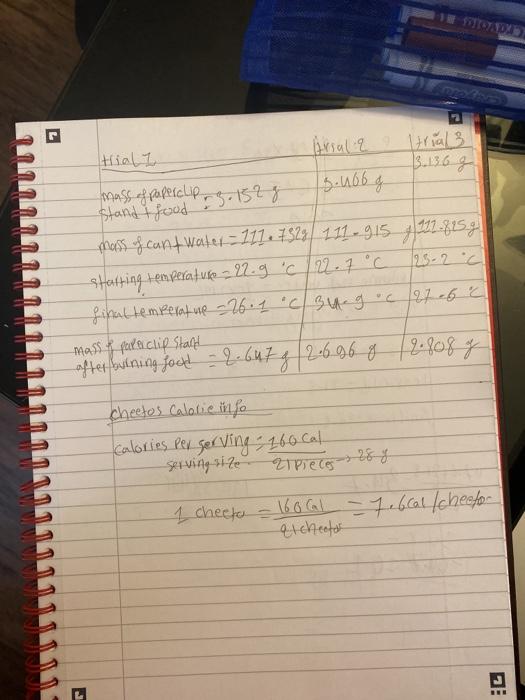 trial 1 trial 2 trial 3
mass of paperclip stand + food = 3.152 g 3.466 g 3.136 g
mass of can + water = 111.732g 111.915 g 111.825g
starting temperature = 22.9 °C 22.7 °C 23.2 °C
final temperature = 26.1 °C 34.9 °C 27.6 °C
mass of paperclip stand after burning food = 2.647 g 2.696 g 2.808 g
cheetos calorie info
Calories per serving = 160 Cal
serving size 21 pieces → 28 g
1 cheeto = 160 Cal = 7.6 Cal/cheeto
21 cheetos